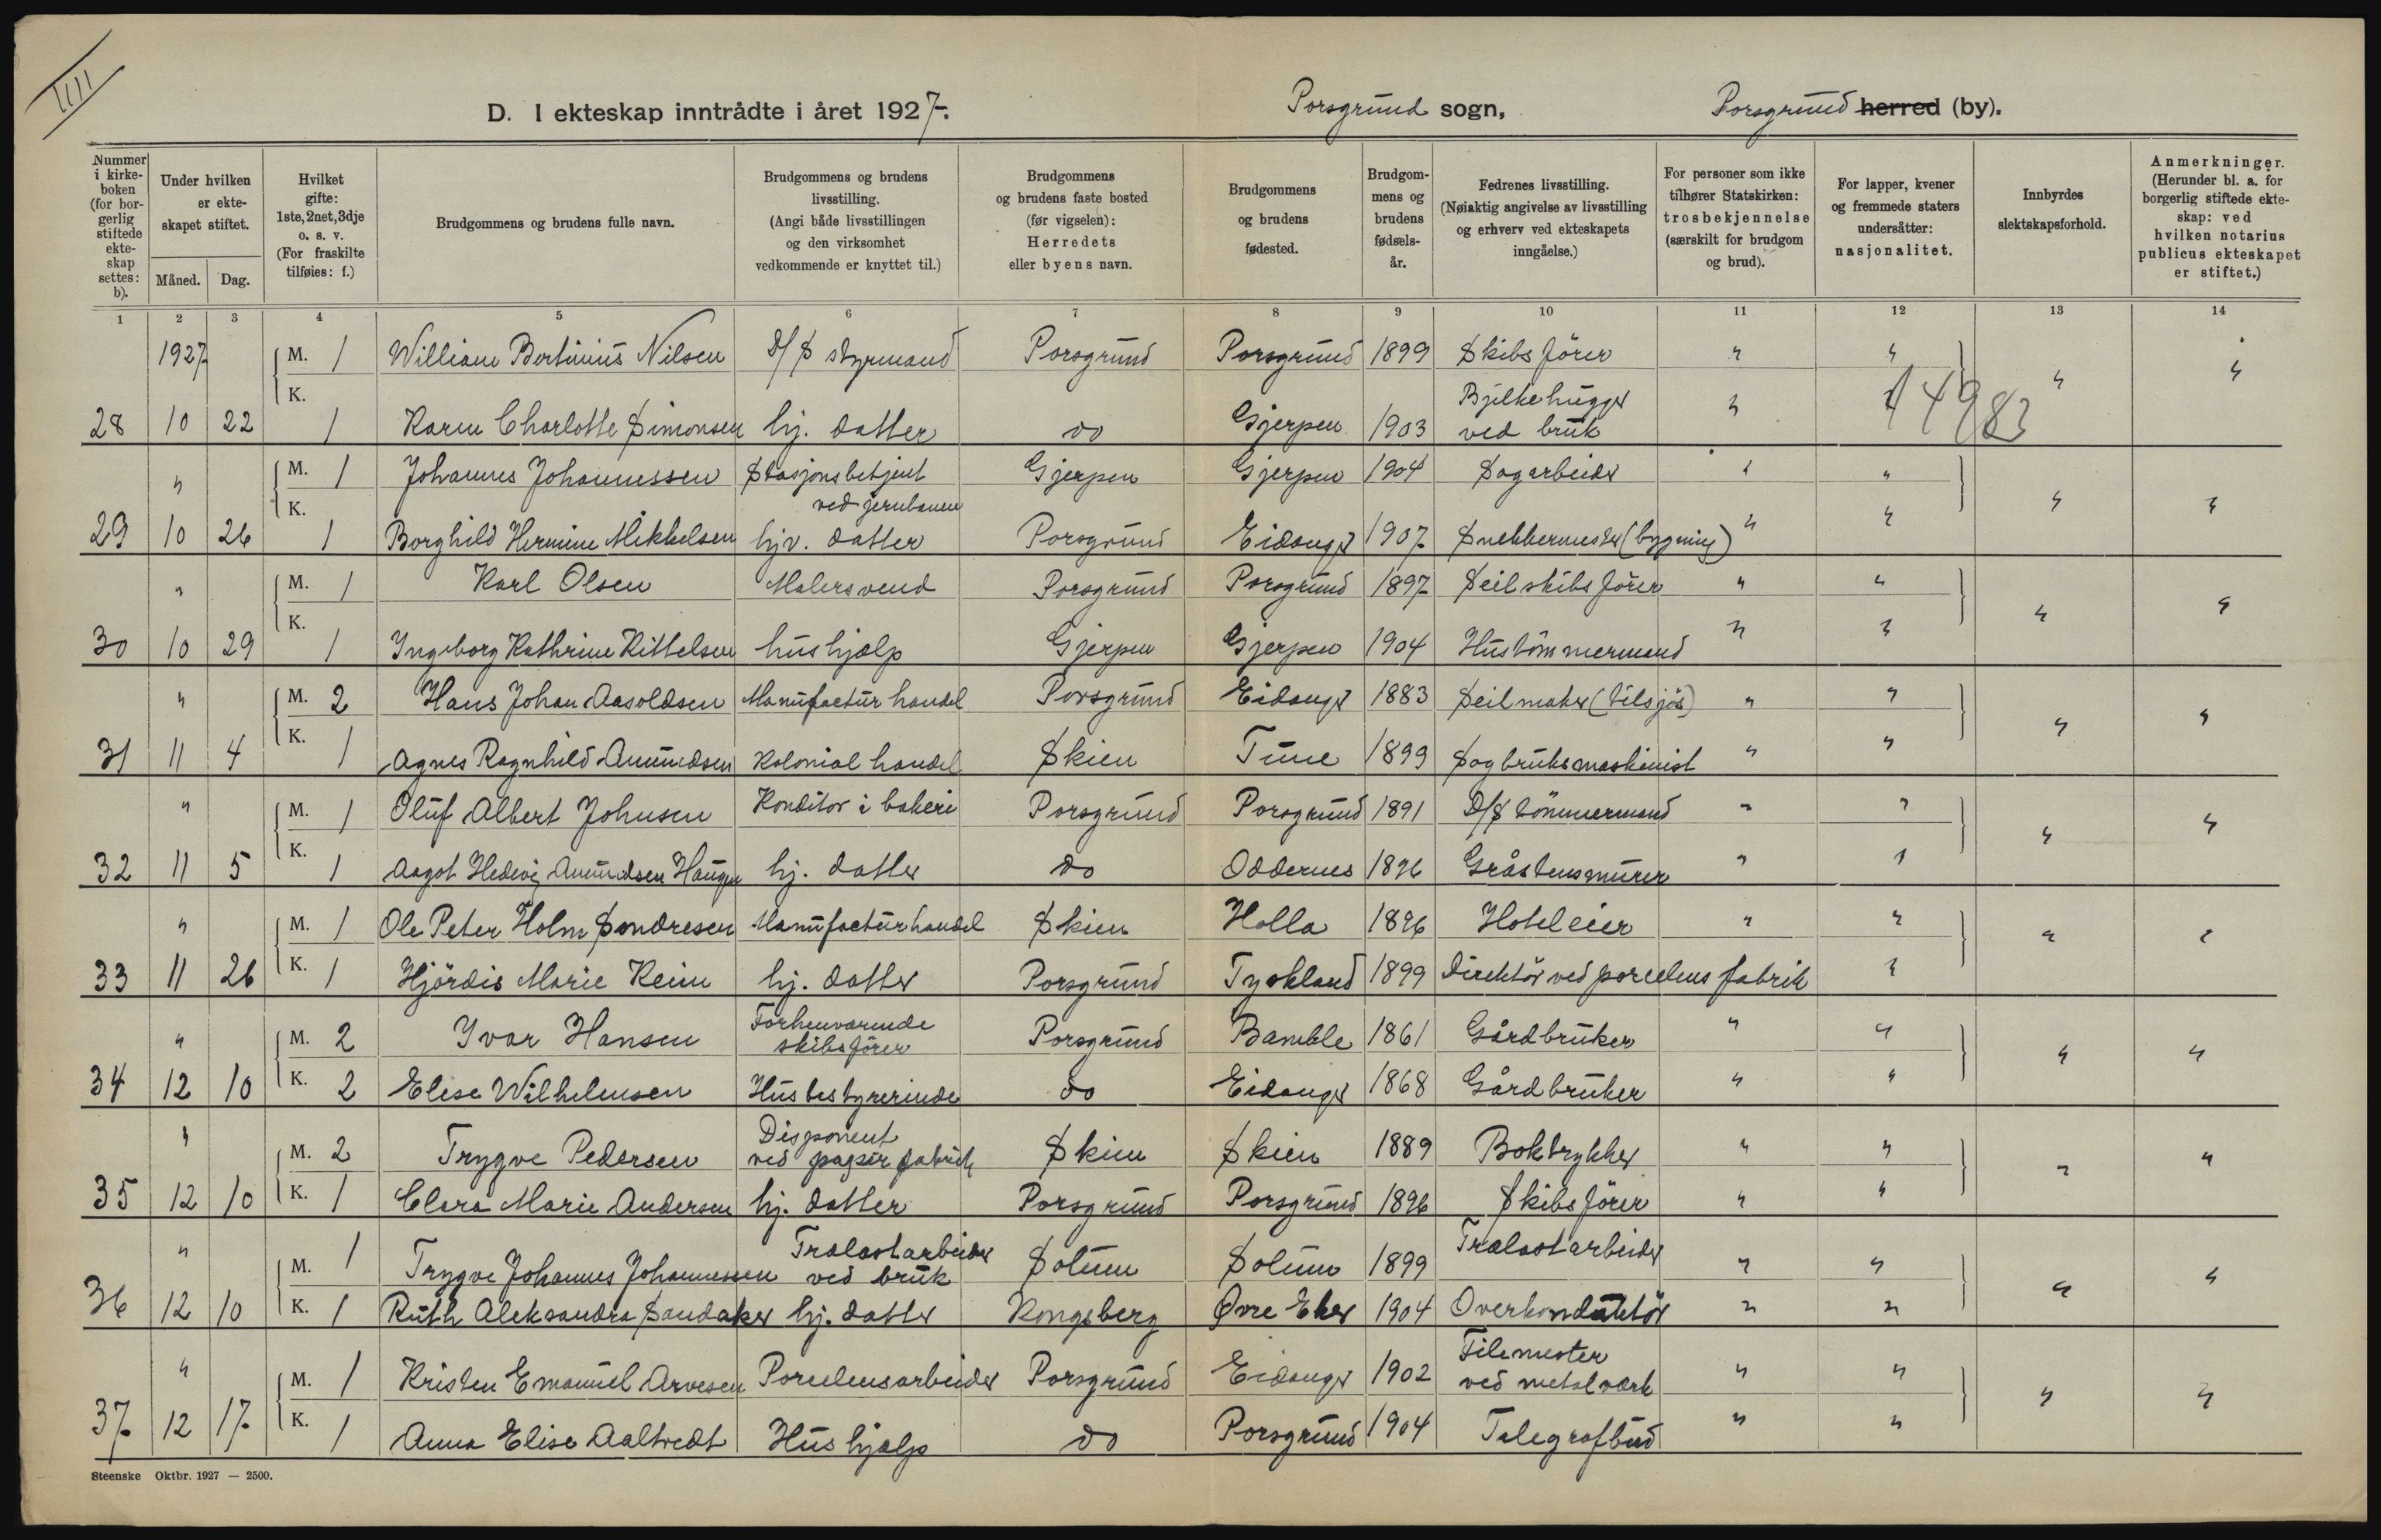 IIII
D. I ekteskap inntrådte i året 1927.
Porsgrund sogn,
Porsgrund herred (by).
Nummer i kirkeboken (for borgerlig stiftede ekteskap settes: b).
Under hvilken er ekteskapet stiftet.
Måned. Dag.
Hvilket gifte: 1ste, 2net, 3dje o. s. v. (For fraskilte tilføies: f.)
Brudgommens og brudens fulle navn.
Brudgommens og brudens livsstilling. (Angi både livsstillingen og den virksomhet vedkommende er knyttet til.)
Brudgommens og brudens faste bosted (før vigselen): Herredets eller byens navn.
Brudgommens og brudens fødested.
Brudgommens og brudens fødselsår.
Fedrenes livsstilling. (Nøiaktig angivelse av livsstilling og erhverv ved ekteskapets inngåelse.)
For personer som ikke tilhører Statskirken: trosbekjennelse (særskilt for brudgom og brud).
For lapper, kvener og fremmede staters undersåtter: nasjonalitet.
Innbyrdes slektskapsforhold.
Anmerkninger. (Herunder bl. a. for borgerlig stiftede ekteskap: ved hvilken notarius publicus ekteskapet er stiftet.)
1 2 3 4 5 6 7 8 9 10 11 12 13 14
1927 M. 1 William Bertinius Nilsen D/S styrmand Porsgrund Porsgrund 1899 Skibsförer " " " "
28 10 22 K. 1 Karen Charlotte Simonsen hj. datter do Gjerpen 1903 Bjelkehugger ved bruk "
" M. 1 Johannes Johannessen Stasjonsbetjent ved jernbanen Gjerpen Gjerpen 1904 Sagarbeider " " " "
29 10 26 K. 1 Borghild Hermine Mikkelsen hjv. datter Porsgrund Eidanger 1907 Snekkermester (bygning) " "
" M. 1 Karl Olsen Malersvend Porsgrund Porsgrund 1897 Seilskibsförer " " " "
30 10 29 K. 1 Ingeborg Kathrine Kittelsen hushjælp Gjerpen Gjerpen 1904 Hustömmermand " "
" M. 2 Hans Johan Aasoldsen Manufactur handel Porsgrund Eidanger 1883 Seilmaker (tilsjös) " " " "
31 11 4 K. 1 Agnes Ragnhild Amundsen Kolonial handel Skien Tune 1899 Sagbruksmaskinist " "
" M. 1 Oluf Albert Johnsen Konditor i bakeri Porsgrund Porsgrund 1891 D/S tömmermand " " " "
32 11 5 K. 1 Aagot Hedevig Amundsen Haugen hj. datter do Oddernes 1896 Gråstensmurer " "
" M. 1 Ole Peter Holm Sondresen Manufacturhandel Skien Holla 1896 Hoteleier " " " "
33 11 26 K. 1 Hjördis Marie Keim hj. datter Porsgrund Tyskland 1899 Direktör ved porcelens fabrik "
" M. 2 Ivar Hansen Forhenværende skibsförer Porsgrund Bamble 1861 Gårdbruker " " " "
34 12 10 K. 2 Elise Wilhelmsen Husbestyrerinde do Eidanger 1868 Gårdbruker " "
" M. 2 Trygve Pedersen Disponent ved papir fabrik Skien Skien 1889 Boktrykker " " " "
35 12 10 K. 1 Clara Marie Andersen hj. datter Porsgrund Porsgrund 1896 Skibsförer " "
" M. 1 Trygve Johannes Johannessen Trælastarbeider ved bruk Solum Solum 1899 Trælastarbeider " " " "
36 12 10 K. 1 Ruth Aleksandra Sandaker hj. datter Kongsberg Øvre Eker 1904 Overkonduktör " "
" M. 1 Kristen Emanuel Arvesen Porcelensarbeider Porsgrund Eidanger 1902 Filemester ved metalværk " " " "
37 12 17 K. 1 Anna Elise Aaltvedt Hushjælp do Porsgrund 1904 Telegrafbud " "
Steenske Oktbr. 1927 — 2500.